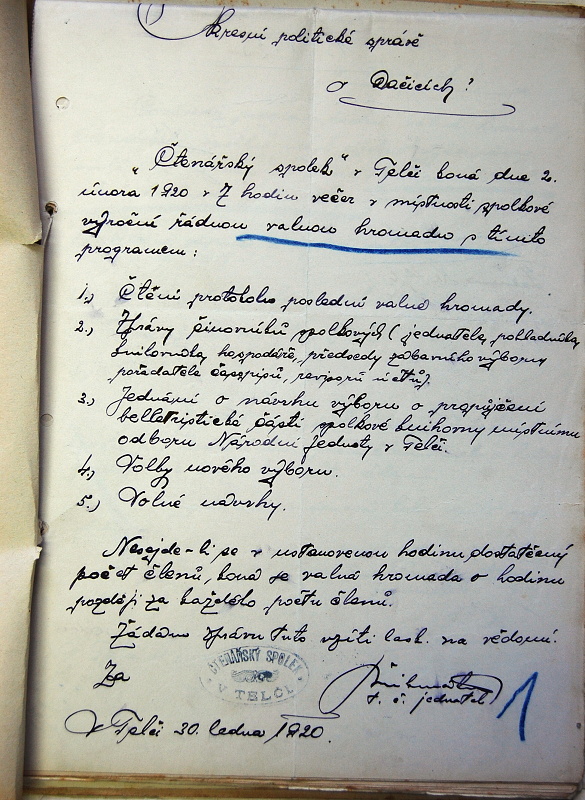 Okresní politické správě
v Dačicích!
„Čtenářský spolek“ v Telči koná dne 2.
února 1920 v 7 hodin večer v místnosti spolkové
výroční řádnou valnou hromadu s tímto
programem:
1.) Čtění protokolu poslední valné hromady.
2.) Zprávy činovníků spolkových (jednatele, pokladníka,
knihovníka, hospodáře, předsedy zábavního výboru
pořadatele časopisů, revisorů účtů).
3.) Jednání o návrhu výboru o propůjčení
belletristické části spolkové knihovny místnímu
odboru Národní Jednoty v Telči.
4.) Volby nového výboru.
5.) Volné návrhy.
Nesejde-li se v ustanovenou hodinu dostatečný
počet členů, koná se valná hromada o hodinu
později za každého počtu členů.
Žádáme zprávu tuto vzíti lask. na vědomí.
Za
ČTENÁŘSKÝ SPOLEK
V TELČI
t. č. jednatel
V Telči 30. ledna 1920.